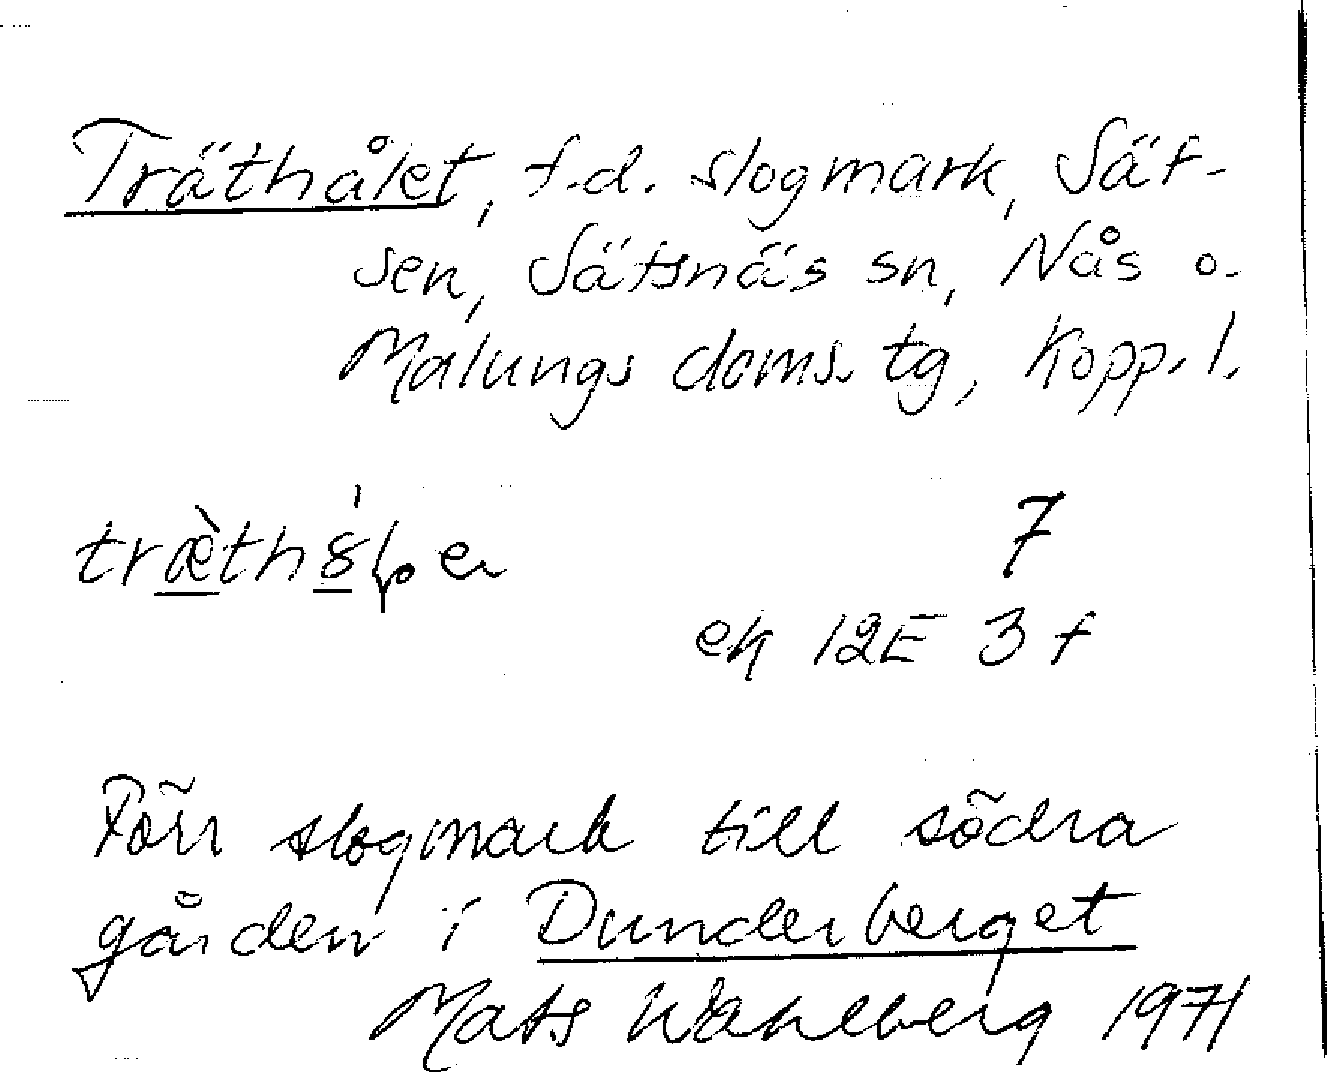 Träthålet, f.d. slogmark, Sät-
sen, Sätsnäs sn, Nås o.
Malungs doms. tg, Kopp. l.
7
ek 12E 3f
Förr slogmark till södra
gården i Dunderberget
Mats Wahlberg 1971